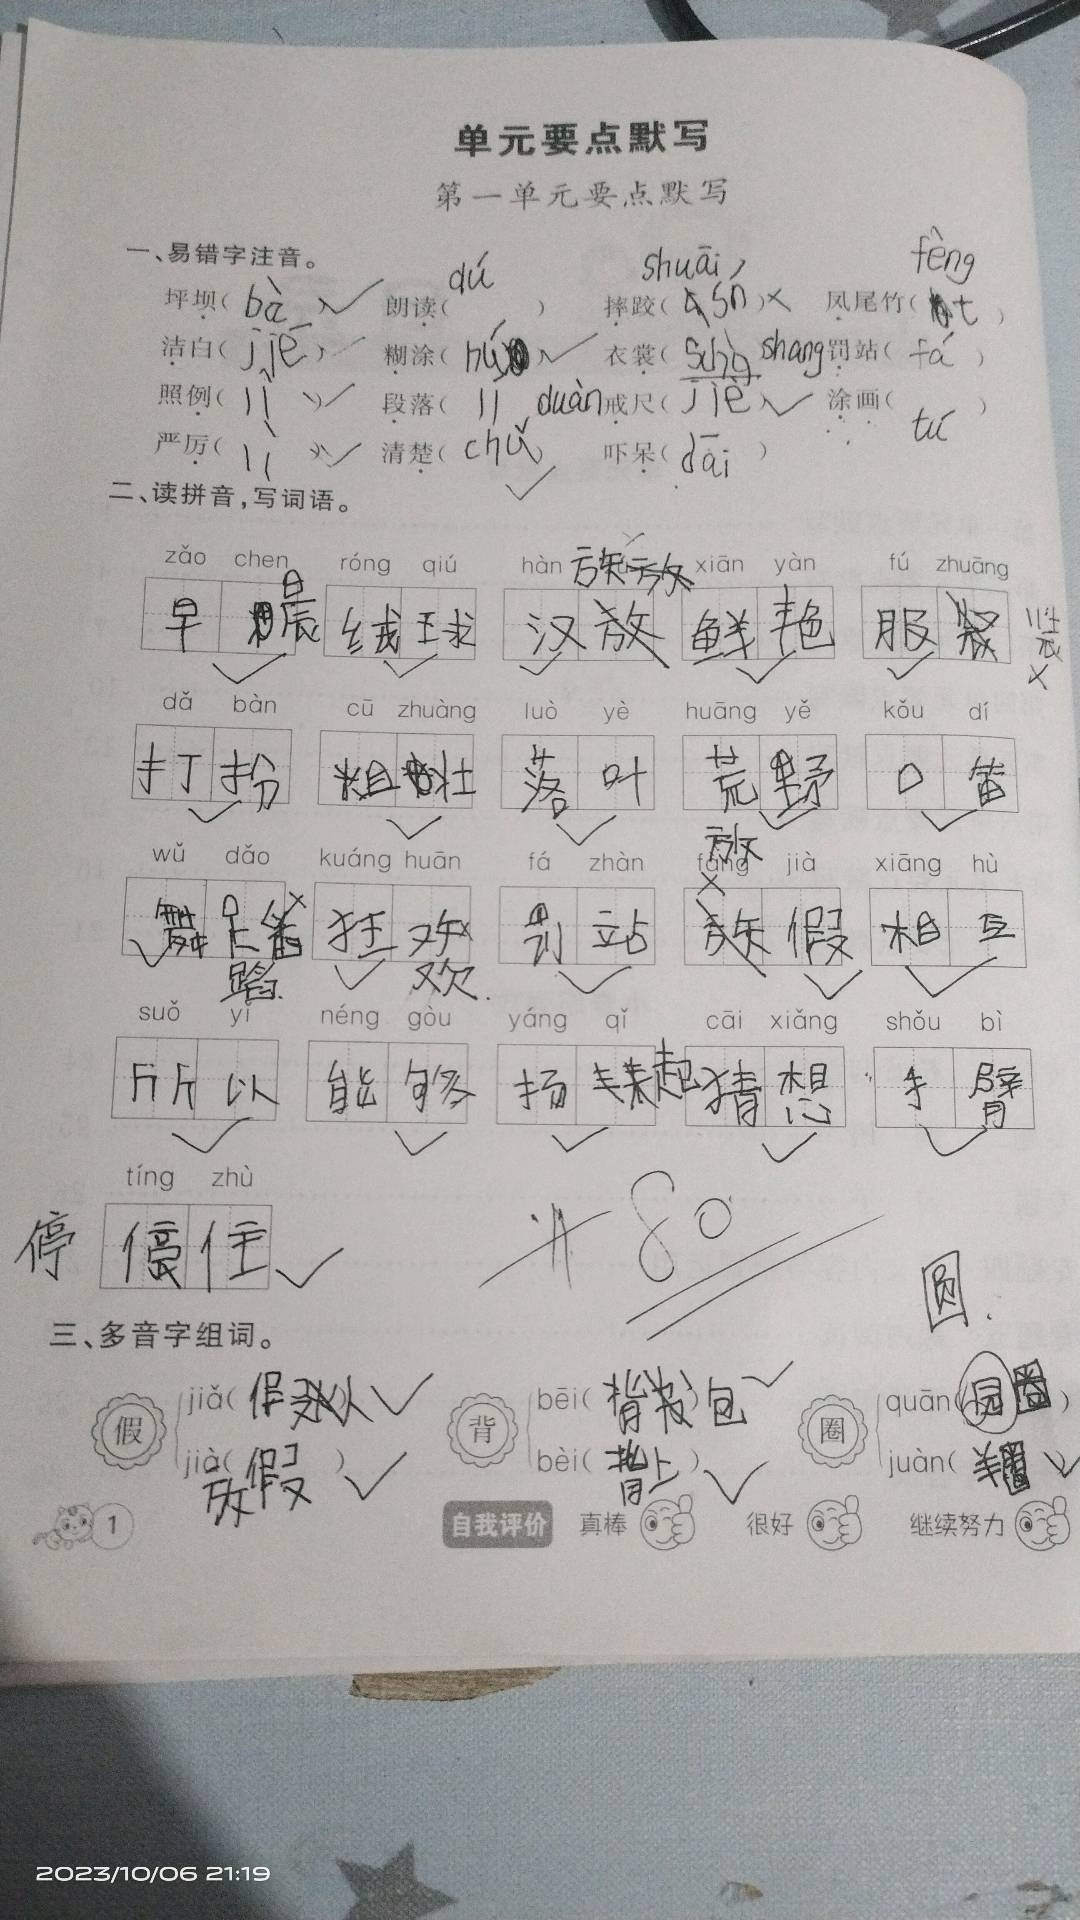 单元要点默写
第一单元要点默写
一、易错字注音。
dú shuāi fèng
坪坝( bà ) 朗读( ) 摔跤( ) 凤尾竹( )
洁白( jié ) 糊涂( hú ) 衣裳( shang 罚站( fá )
照例( lì ) 段落( duàn 戒尺( jiè ) 涂画( )
tú
严厉( lì ) 清楚( chǔ ) 吓呆( dāi )
二、读拼音,写词语。
zǎo chen róng qiú hàn xiān yàn fú zhuāng
早 晨 绒 球 汉 鲜 艳 服 装
dǎ bàn cū zhuàng luò yè huāng yě kǒu dí
打 扮 粗 壮 落 叶 荒 野 口 笛
放
wǔ dǎo kuáng huān fá zhàn fàng jià xiāng hù
舞 狂 罚 站 假 相 互
蹈 欢
suǒ yǐ néng gòu yáng qǐ cāi xiǎng shǒu bì
所 以 能 够 扬 起 猜 想 手 臂
tíng zhù
停 停 住
80
圆
三、多音字组词。
假 jiǎ( 假 人 背 bēi( 背 包 圈 quān( 圆圈 )
jià( 放假 ) bèi( 背上 ) juàn( 羊圈
1 自我评价 真棒 很好 继续努力
2023/10/06 21:19